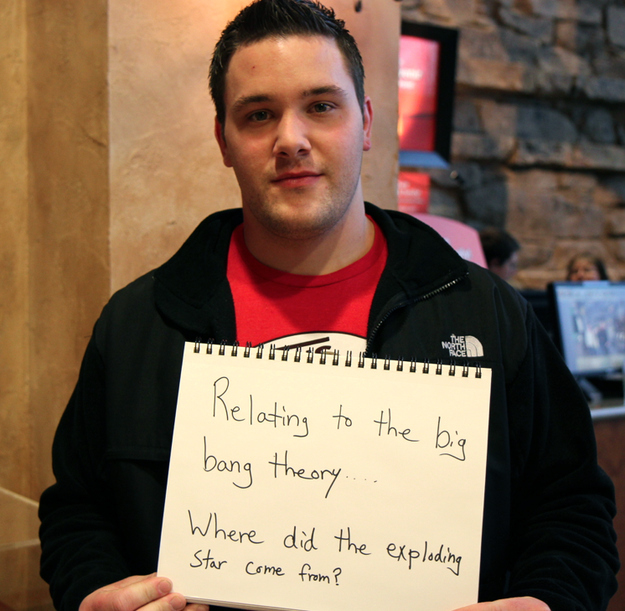 THE
NORTH
FACE
Relating to the big
bang theory.....
Where did the exploding
star come from?